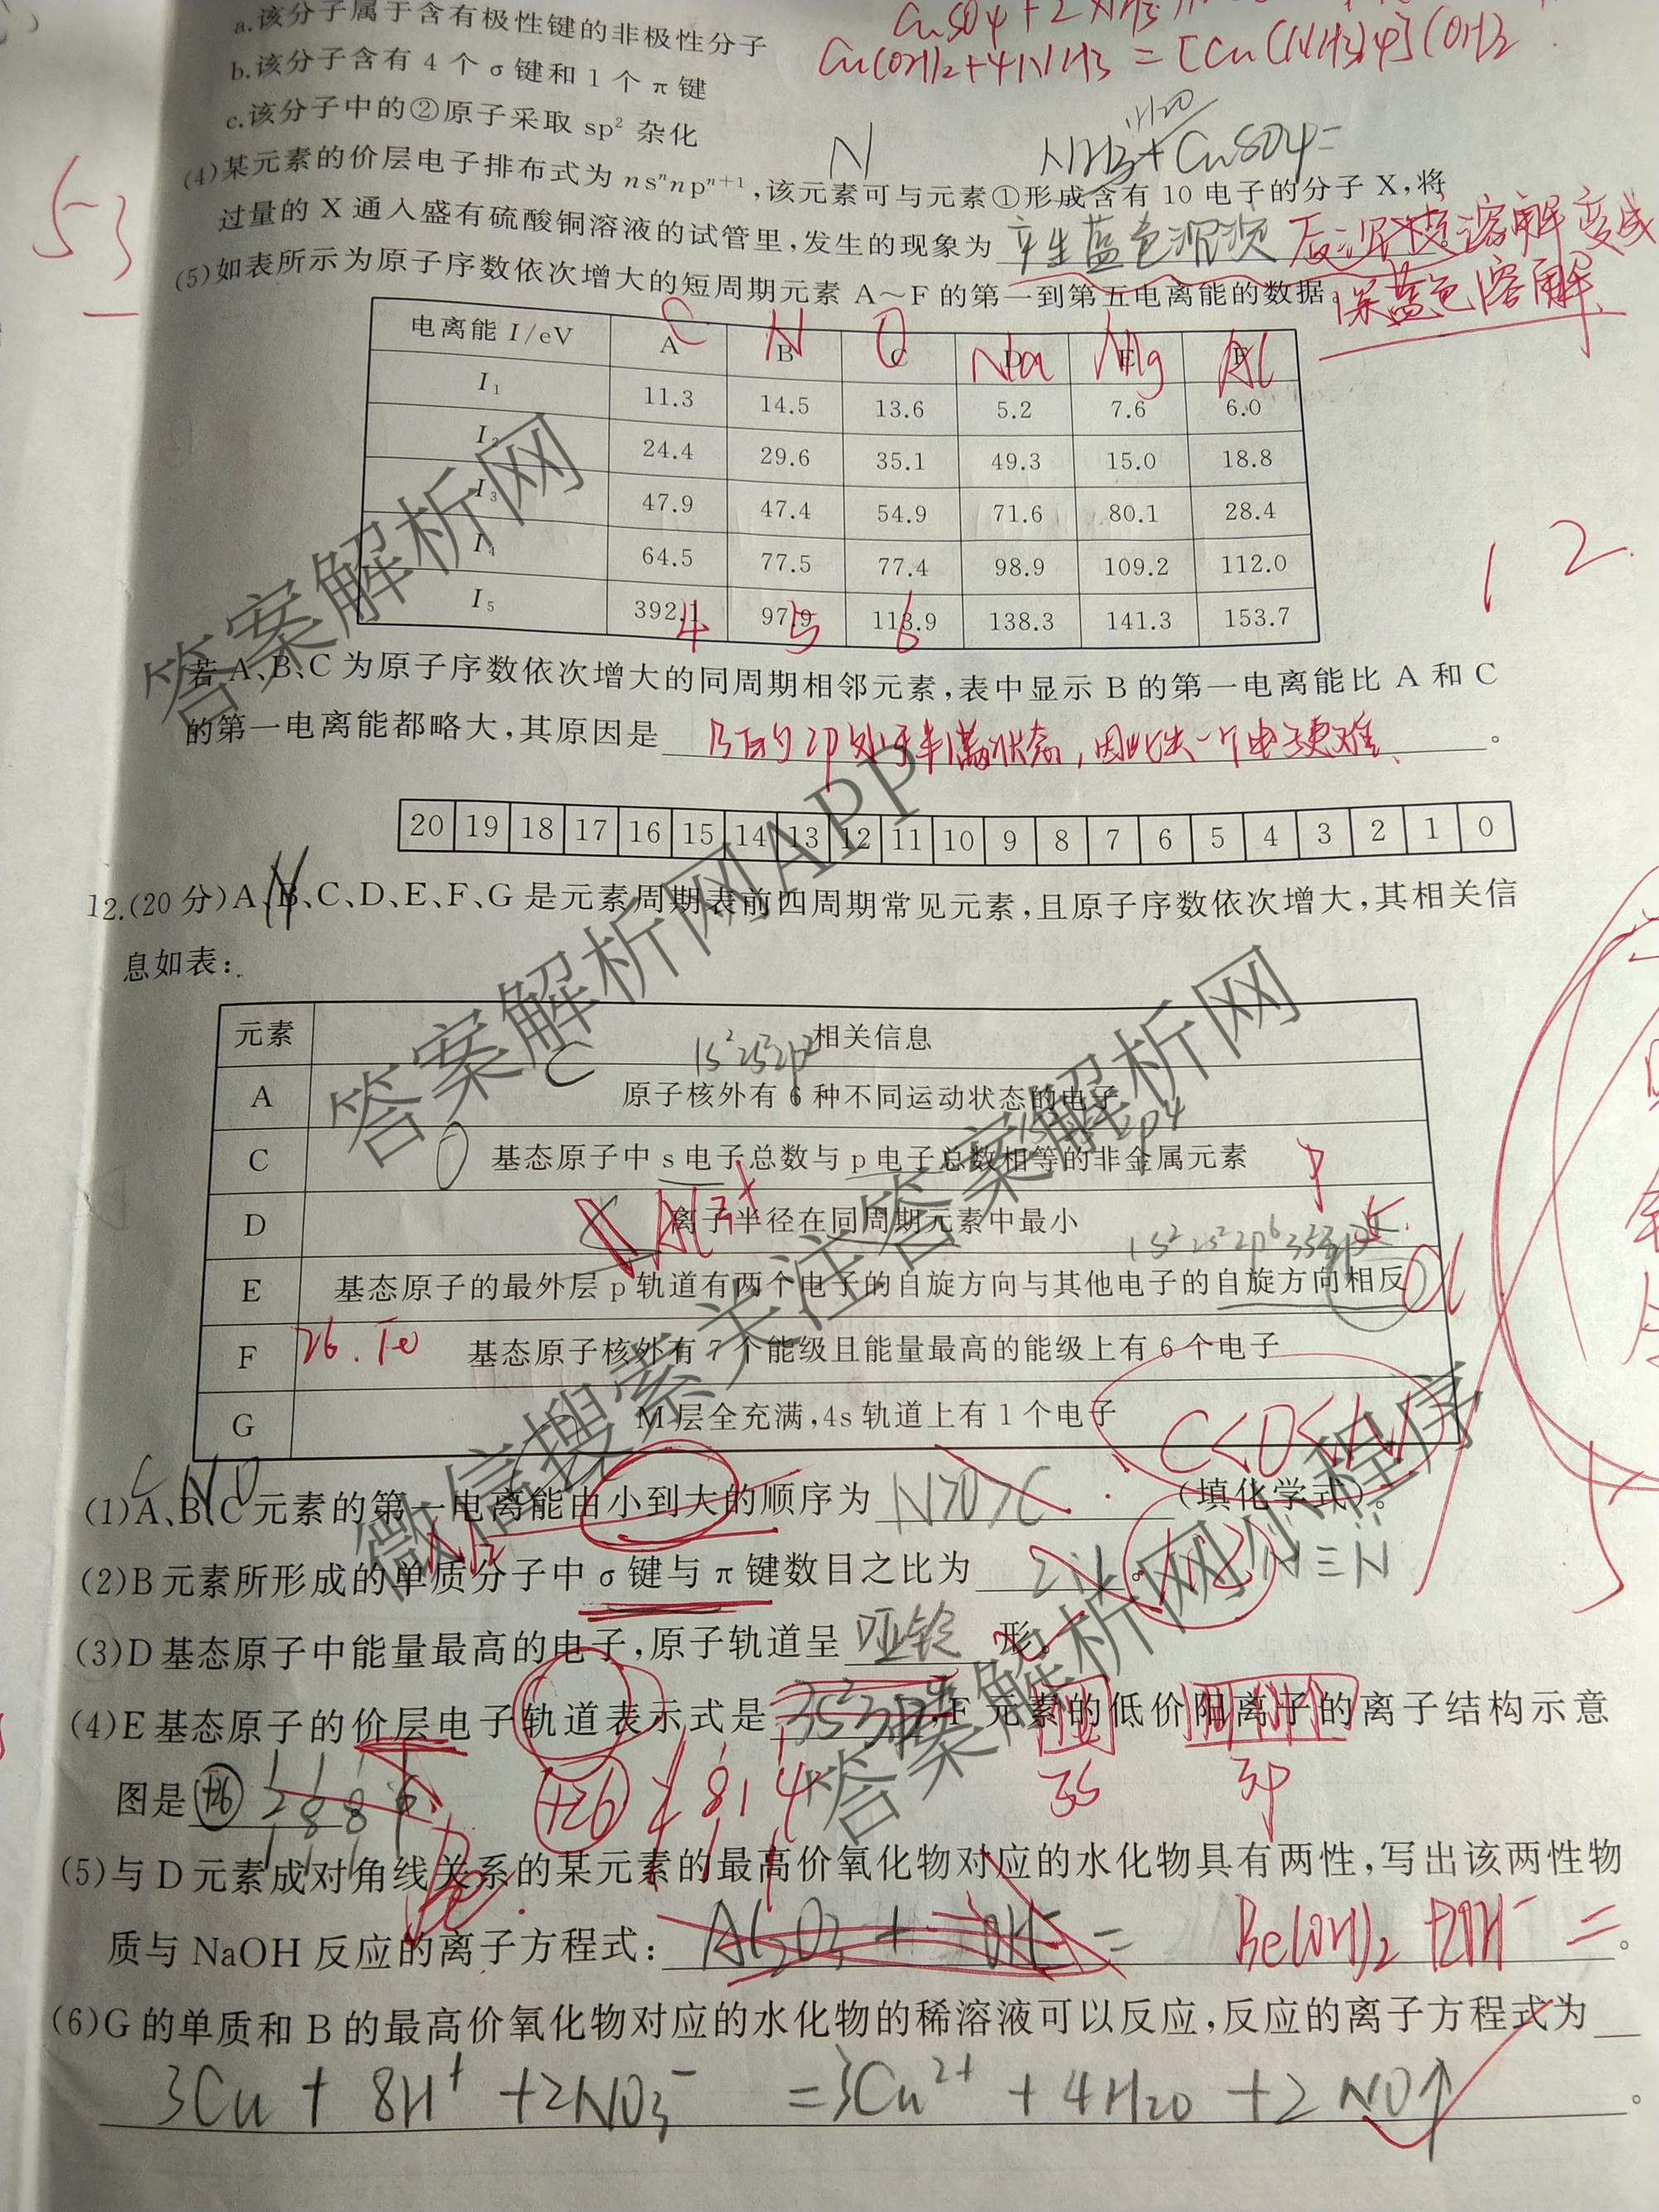 a.该分子属于含有极性键的非极性分子
b.该分子含有 4 个 σ 键和 1 个 π 键
c.该分子中的②原子采取 sp² 杂化
Cu(OH)₂+4NH₃ = [Cu(NH₃)₄](OH)₂
N
NH₃+CuSO₄=
53
(4)某元素的价层电子排布式为 nsⁿnpⁿ⁺¹,该元素可与元素①形成含有 10 电子的分子 X,将
过量的 X 通入盛有硫酸铜溶液的试管里,发生的现象为 产生蓝色沉淀
后沉淀溶解变成
深蓝色溶解
(5)如表所示为原子序数依次增大的短周期元素 A～F 的第一到第五电离能的数据。
C N O Na Mg Al
电离能 I/eV A B C D E F
I₁ 11.3 14.5 13.6 5.2 7.6 6.0
I₂ 24.4 29.6 35.1 49.3 15.0 18.8
I₃ 47.9 47.4 54.9 71.6 80.1 28.4
I₄ 64.5 77.5 77.4 98.9 109.2 112.0
I₅ 392.1 97.9 113.9 138.3 141.3 153.7
4 5 6
1 2
若 A、B、C 为原子序数依次增大的同周期相邻元素,表中显示 B 的第一电离能比 A 和 C
的第一电离能都略大,其原因是 B的2p处于半满状态,因此失一个电子更难 。
20 19 18 17 16 15 14 13 12 11 10 9 8 7 6 5 4 3 2 1 0
N
12.(20 分)A、B、C、D、E、F、G 是元素周期表前四周期常见元素,且原子序数依次增大,其相关信
息如表:
元素 相关信息
C 1s²2s²2p²
A 原子核外有 6 种不同运动状态的电子
C O 基态原子中 s 电子总数与 p 电子总数相等的非金属元素
D Al³⁺ 离子半径在同周期元素中最小
E 基态原子的最外层 p 轨道有两个电子的自旋方向与其他电子的自旋方向相反 Cl
F 26.Fe 基态原子核外有 7 个能级且能量最高的能级上有 6 个电子
G M 层全充满,4s 轨道上有 1 个电子
C<O<N
C N O
(1)A、B、C 元素的第一电离能由小到大的顺序为 N>O>C (填化学式)。
N₂
(2)B 元素所形成的单质分子中 σ 键与 π 键数目之比为 2:1 。 1:2 N≡N
(3)D 基态原子中能量最高的电子,原子轨道呈 哑铃 形。
(4)E 基态原子的价层电子轨道表示式是 ,F 元素的低价阳离子的离子结构示意
3s 3p
图是 +26 2 8 8 6
+26 2 8 14
Be
(5)与 D 元素成对角线关系的某元素的最高价氧化物对应的水化物具有两性,写出该两性物
质与 NaOH 反应的离子方程式: Al₂O₃ + OH⁻ = Be(OH)₂+2OH⁻= 。
(6)G 的单质和 B 的最高价氧化物对应的水化物的稀溶液可以反应,反应的离子方程式为
3Cu + 8H⁺ +2NO₃⁻ =3Cu²⁺ +4H₂O +2NO↑ 。
答案解析网
答案解析网APP
微信搜索关注答案解析网
答案解析网小程序